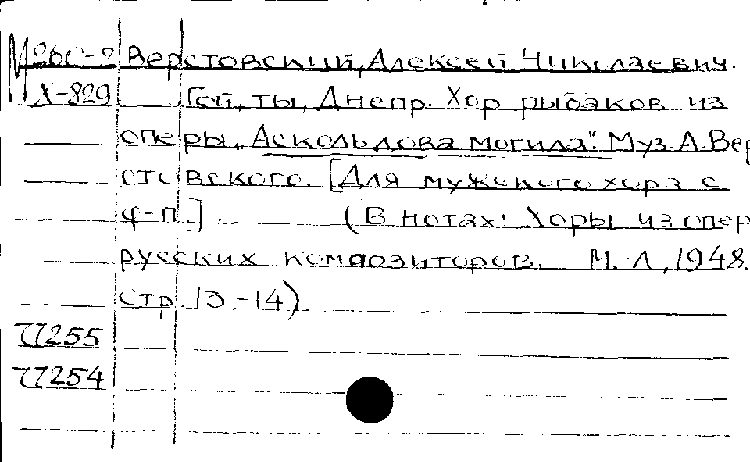 М 260-2 Верстовский, Алексей Николаевич.
Х-829 Гой, ты, Днепр. Хор рыбаков из
оперы „Аскольдова могила". Муз. А. Вер
стовского. [Для мужского хора с
ф-п.] (В нотах: Хоры из опер
русских композиторов. М.-Л., 1948.
стр. 13-14)
77255
77254